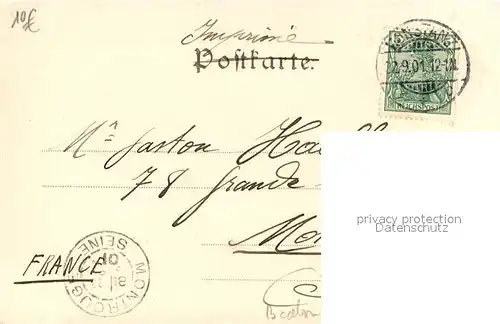 10€
Imprimé
Postkarte.
KONSTANZ
9.01.12-1N.
REICHSPOST
Mr Gaston Ha
78 Grande
Mon
FRANCE
MONTROUGE
SEINE
01
privacy protection
Datenschutz